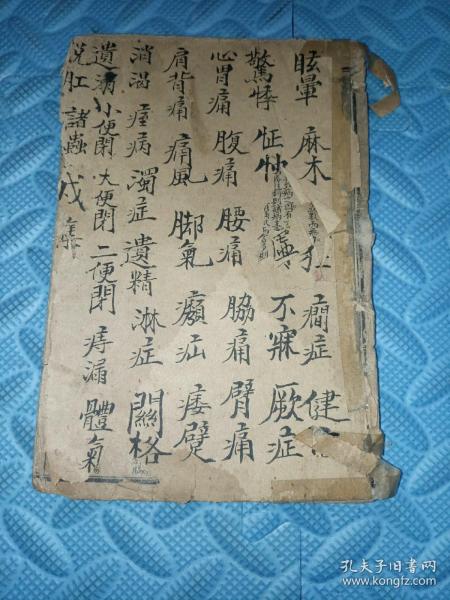 眩暈 麻木 狂 癇症 健
驚悸 怔忡 不寐 厥症
心胃痛 腹痛 腰痛 脇痛 臂痛
肩背痛 痛風 脚氣 癩疝 痿躄
消渴 痙病 濁症 遺精 淋症 關格
遺溺 小便閉 大便閉 二便閉 痔漏 體氣
脱肛 諸蟲 戊集
孔夫子旧书网
www.kongfz.com